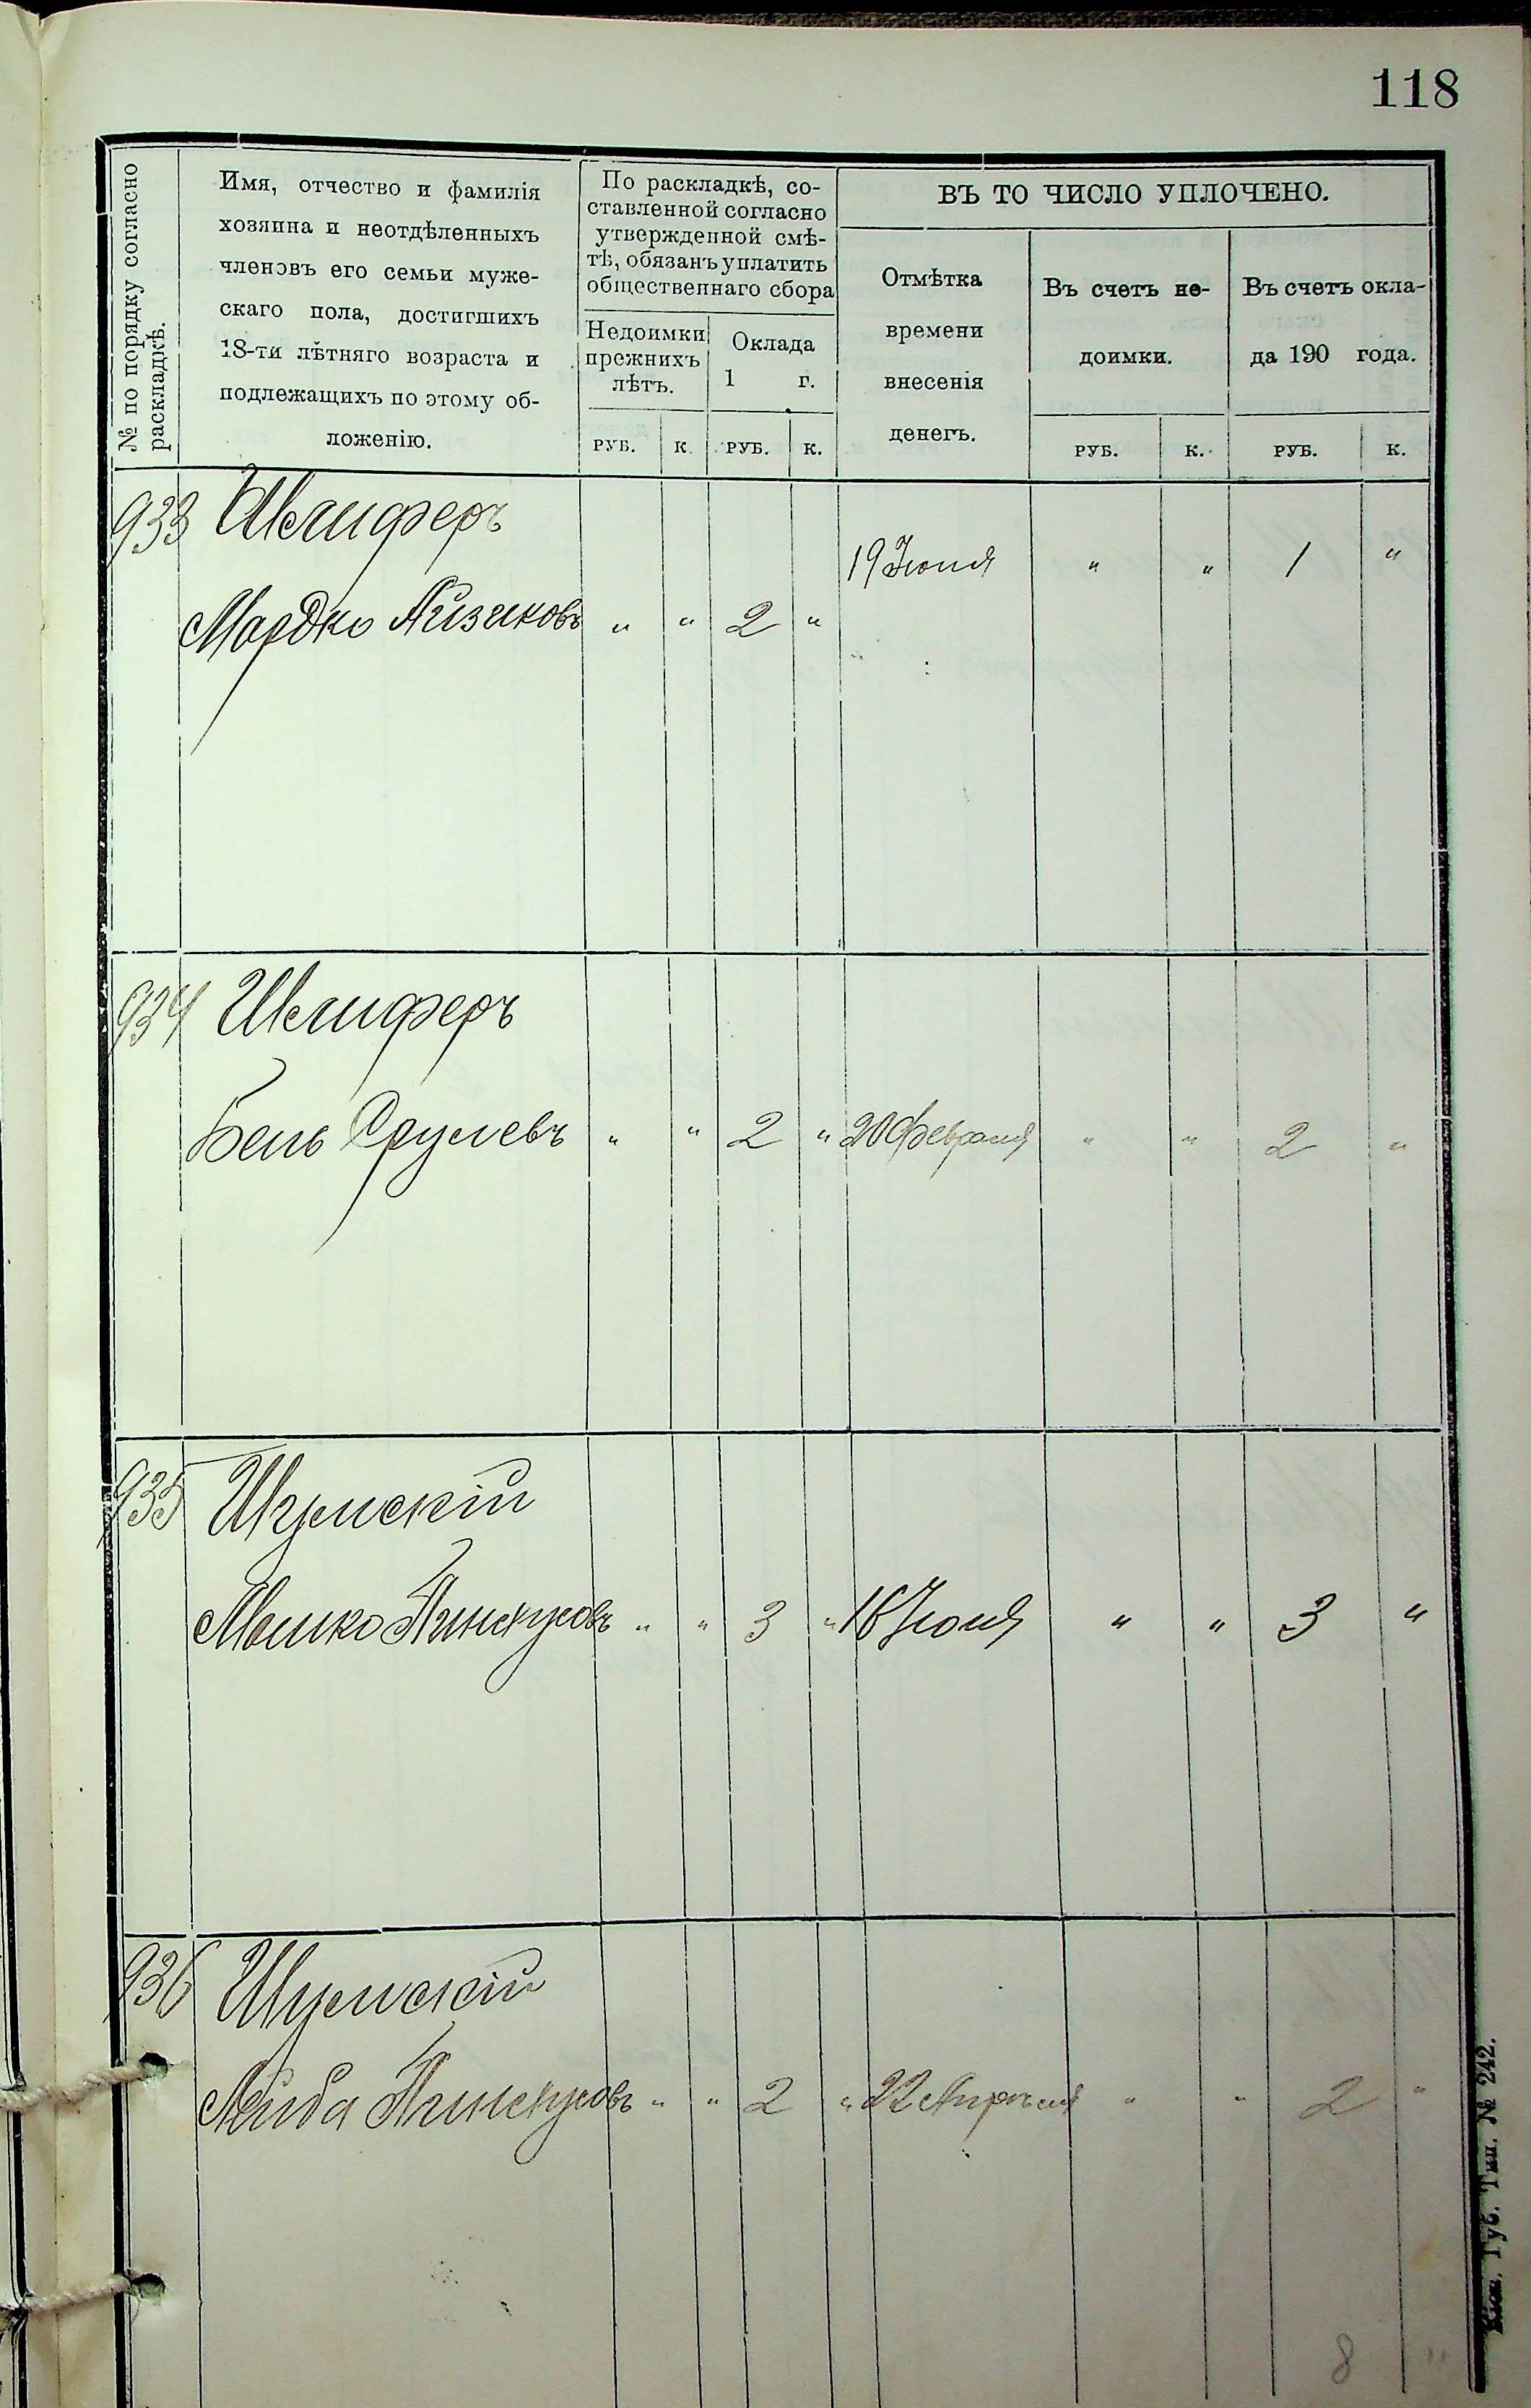 118
№ по порядку согласно
раскладкѣ.
Имя, отчество и фамилія
хозяина и неотдѣленныхъ
членовъ его семьи муже-
скаго пола, достигшихъ
18-ти лѣтняго возраста и
подлежащихъ по этому об-
ложенію.
По раскладкѣ, со-
ставленной согласно
утвержденной смѣ-
тѣ, обязанъ уплатить
общественнаго сбора
Недоимки
прежнихъ
лѣтъ.
Оклада
1 г.
ВЪ ТО ЧИСЛО УПЛОЧЕНО.
Отмѣтка
времени
внесенія
денегъ.
Въ счетъ не-
доимки.
Въ счетъ окла-
да 190 года.
РУБ. К. РУБ. К. РУБ. К. РУБ. К.
933 Шлиферъ
19 Іюня " " 1 "
Мордко Айзиковъ " " 2 "
934 Шлиферъ
Бень Срулевъ " " 2 " 20 Февраля " " 2 "
935 Шумскій
Мошко Пинкусовъ " " 3 " 16 Іюня " " 3 "
936 Шумскій
Лейба Пинкусовъ " " 2 " 22 Апрѣля " " 2 "
8 "
Киш. Губ. Тип. № 242.